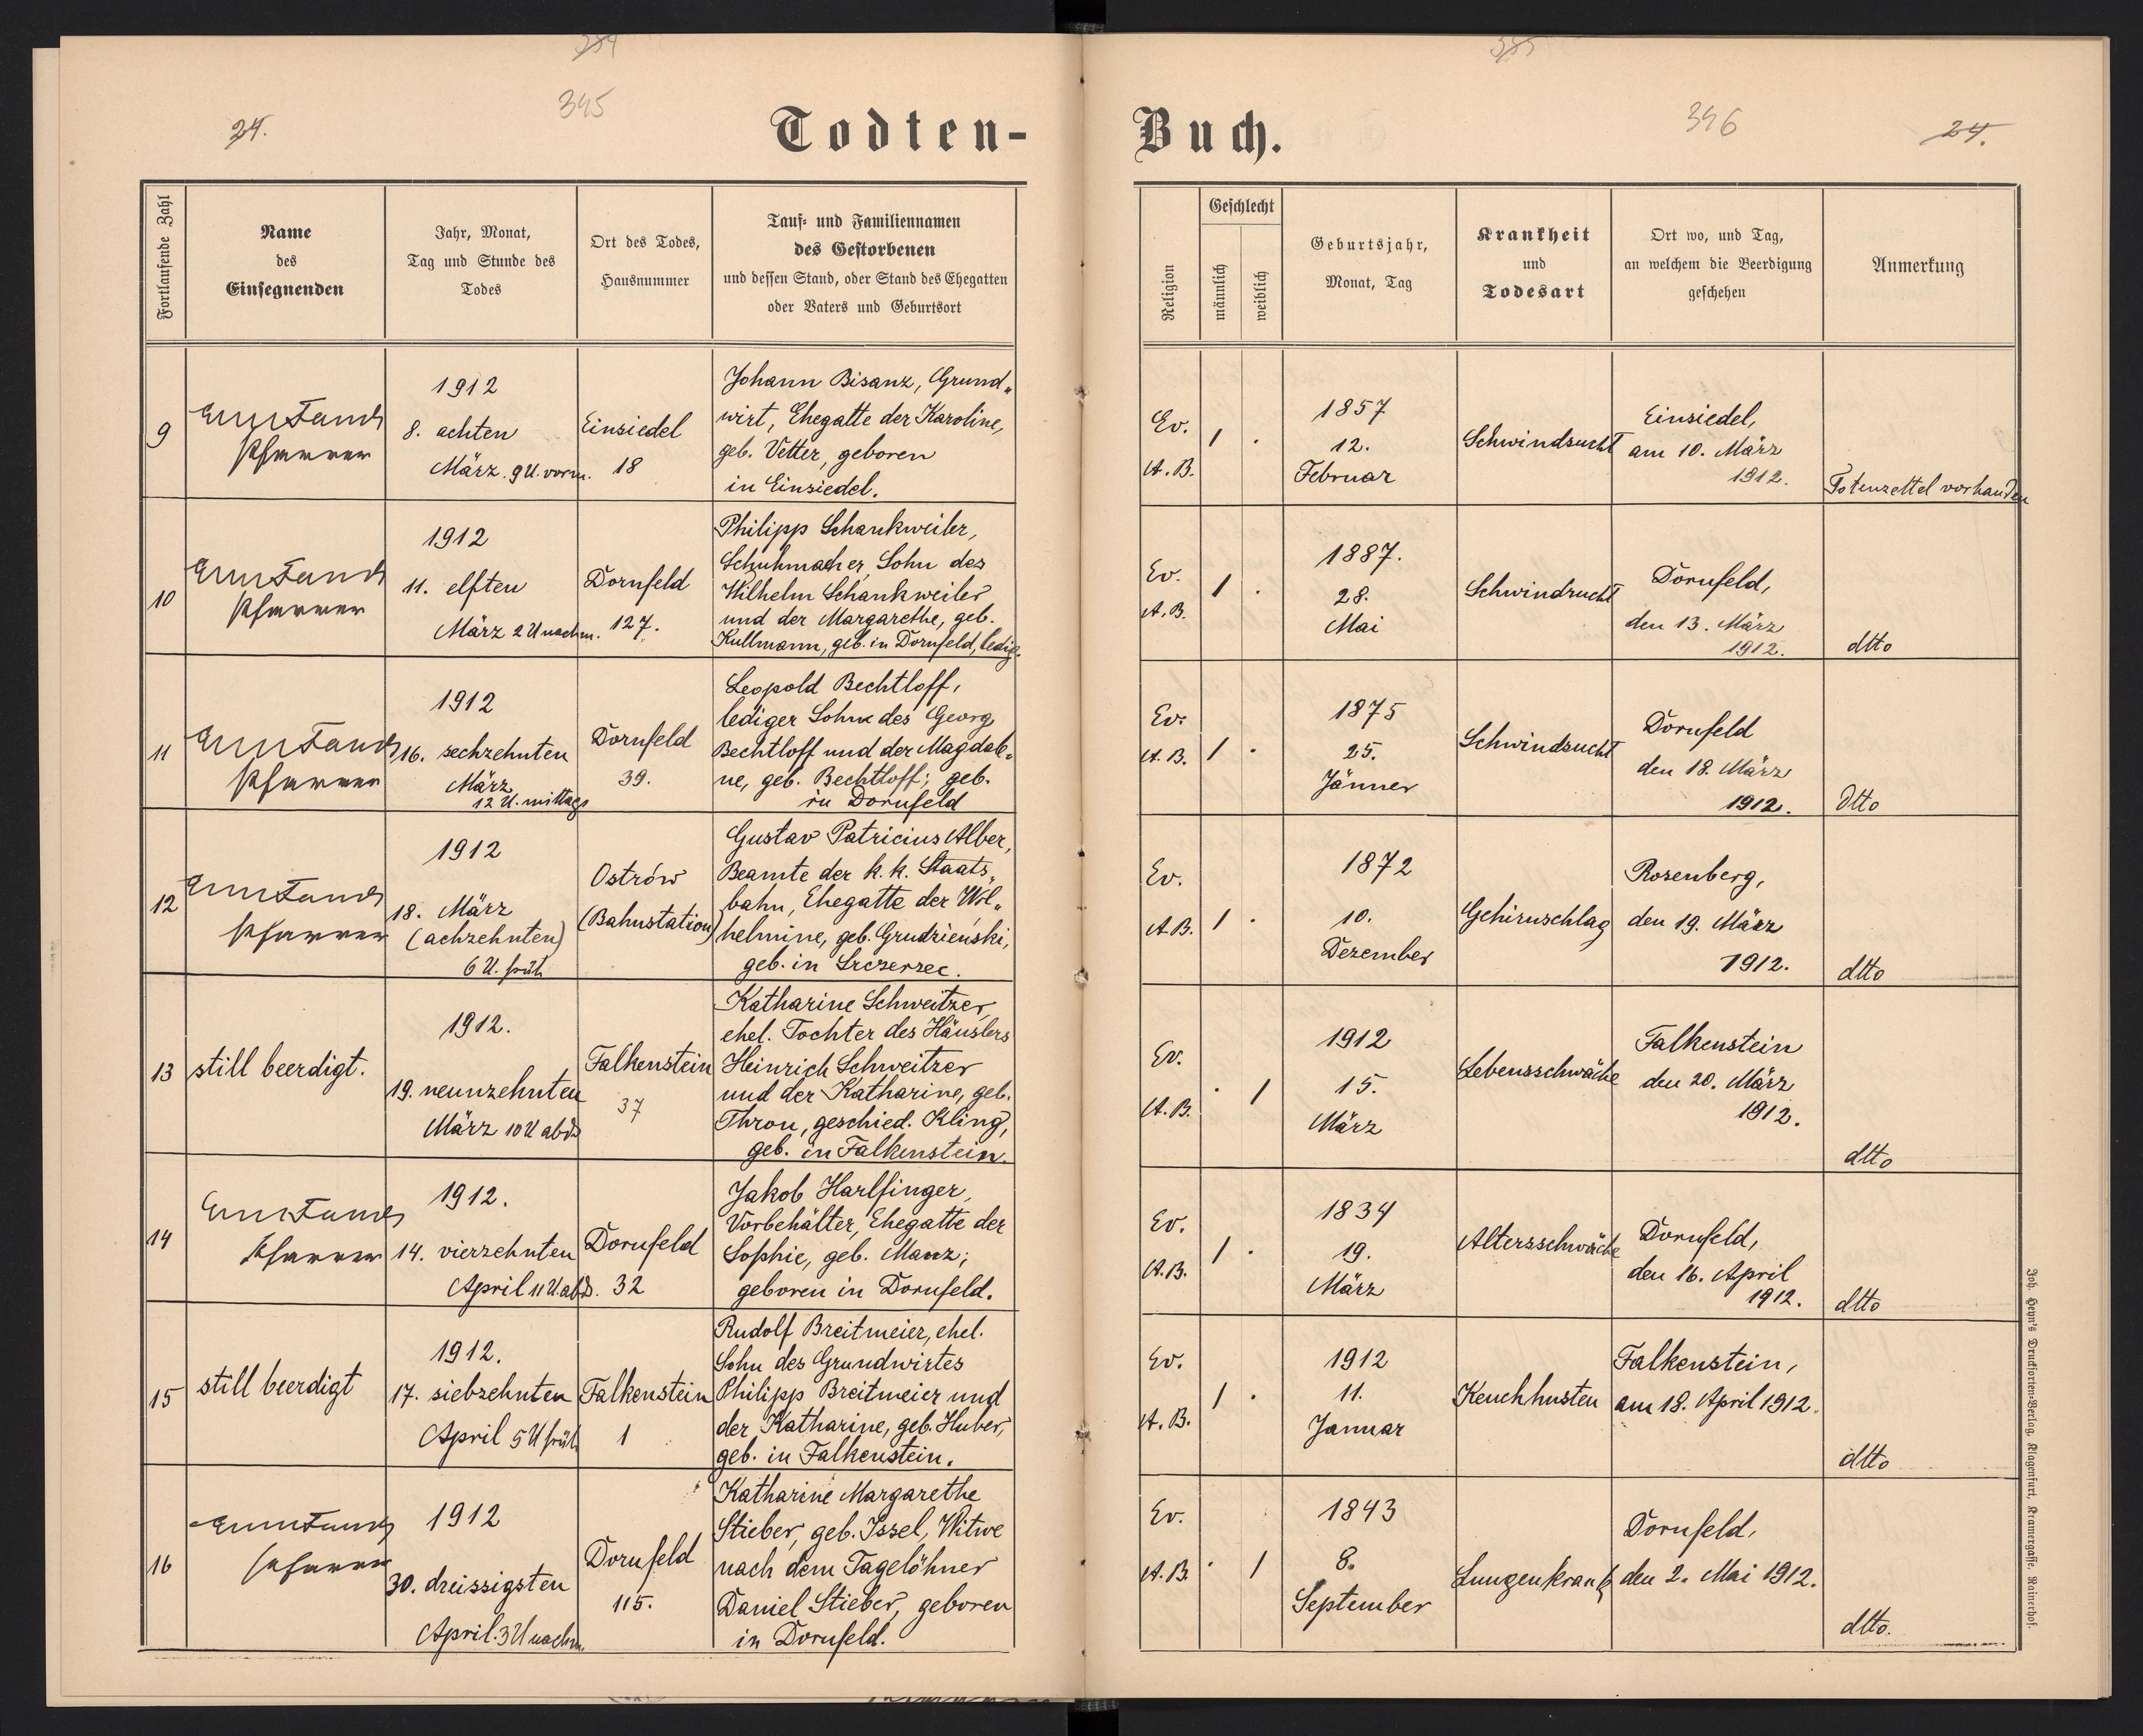 384
385
24.
345
346
24.
Todten-
Buch.
Fortlaufende Zahl
Name
des
Einsegnenden
Jahr, Monat,
Tag und Stunde des
Todes
Ort des Todes,
Hausnummer
Tauf- und Familiennamen
des Gestorbenen
und dessen Stand, oder Stand des Ehegatten
oder Vaters und Geburtsort
Religion
Geschlecht
männlich
weiblich
Geburtsjahr,
Monat, Tag
Krankheit
und
Todesart
Ort wo, und Tag,
an welchem die Beerdigung
geschehen
Anmerkung
9
Pfarrer
1912
8. achten
März. 9 U. vorm.
Einsiedel
18
Johann Bisanz, Grund„
wirt, Ehegatte der Karoline,
geb. Vetter, geboren
in Einsiedel.
Ev.
A. B.
1 .
1857
12.
Februar
Schwindsucht
Einsiedel,
am 10. März
1912.
Totenzettel vorhanden
10
Pfarrer
1912
11. elften
März 2 U nachm.
Dornfeld
127.
Philipp Schankweiler,
Schuhmacher, Sohn des
Wilhelm Schankweiler
und der Margarethe, geb.
Kullmann, geb. in Dornfeld, ledig.
Ev.
A. B.
1 .
1887.
28.
Mai
Schwindsucht
Dornfeld,
den 13. März
1912.
dtto
11
Pfarrer
1912
16. sechzehnten
März
12 U. mittags
Dornfeld
39.
Leopold Bechtloff,
lediger Sohn des Georg
Bechtloff und der Magdale„
ne, geb. Bechtloff; geb.
in Dornfeld
Ev.
A. B.
1 .
1875
25.
Jänner
Schwindsucht
Dornfeld
den 18. März
1912.
dtto
12
Pfarrer
1912
18. März
(achzehnten)
6 U. früh
Ostrów
(Bahnstation)
Gustav Patricius Alber,
Beamte der k. k. Staats„
bahn, Ehegatte der Wil„
helmine, geb. Grudzieński,
geb. in Szczerzec.
Ev.
A B.
1 .
1872
10.
Dezember
Gehirnschlag
Rosenberg,
den 19. März
1912.
dtto
13
still beerdigt.
1912.
19. neunzehnten
März 10 U abds
Falkenstein
37
Katharine Schweitzer,
ehel. Tochter des Häuslers
Heinrich Schweitzer
und der Katharine, geb.
Thron, geschied. Kling,
geb. in Falkenstein.
Ev.
A. B.
. 1
1912
15.
März
Lebensschwäche
Falkenstein
den 20. März
1912.
dtto
14
Pfarrer
1912.
14. vierzehnten
April 11 U. abds.
Dornfeld
32
Jakob Harlfinger,
Vorbehälter, Ehegatte der
Sophie, geb. Manz;
geboren in Dornfeld.
Ev.
A. B.
1 .
1834
19.
März
Altersschwäche
Dornfeld,
den 16. April
1912.
dtto
15
still beerdigt
1912.
17. siebzehnten
April 5 U früh
Falkenstein
1
Rudolf Breitmeier, ehel.
Sohn des Grundwirtes
Philipp Breitmeier und
der Katharine, geb. Huber,
geb. in Falkenstein.
Ev.
A. B.
1 .
1912
11.
Januar
Keuchhusten
Falkenstein,
am 18. April 1912.
dtto
16
Pfarrer
1912
30. dreissigsten
April. 3 U nachm.
Dornfeld
115.
Katharine Margarethe
Stieber, geb. Issel, Witwe
nach dem Tagelöhner
Daniel Stieber, geboren
in Dornfeld.
Ev.
A. B.
. 1
1843
8.
September
Lungenkrank
Dornfeld,
den 2. Mai 1912.
dtto.
Joh. Heyn's Drucksorten-Verlag, Klagenfurt, Kramergasse, Rainerhof.